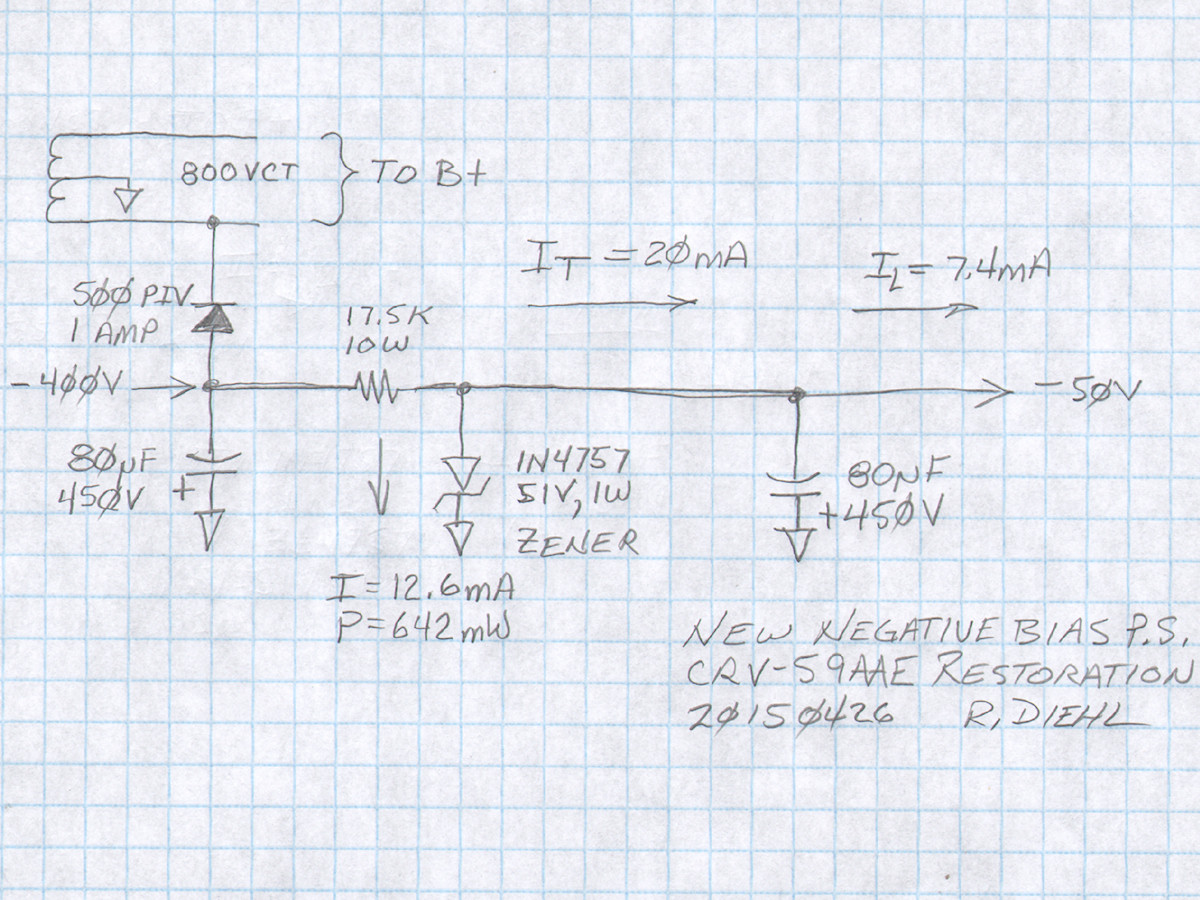 800VCT
TO B+
IT = 2ØmA
IL = 7.4mA
5ØØ PIV
1 AMP
17.5K
10W
-4ØØV
-5ØV
8ØµF
45ØV +
1N4757
51V, 1W
ZENER
80µF
+450V
I = 12.6mA
P = 642mW
NEW NEGATIVE BIAS P.S.
CRV-59AAE RESTORATION
2Ø15Ø426 R. DIEHL